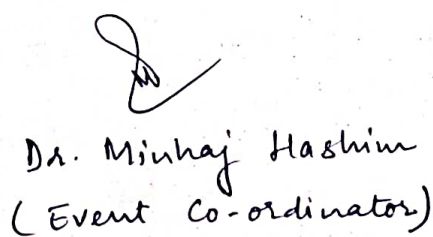 Dr. Minhaj Hashim
(Event Co-ordinator)